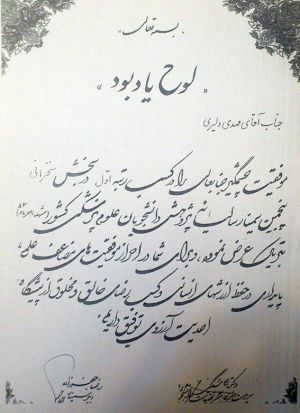 بسمه تعالی
« لوح یادبود »
جناب آقای مهدی دلیری
موفقیت چشمگیر جنابعالی را در کسب رتبه اول در بخش سخنرانی
پنجمین سمینار سالیانه پژوهشی دانشجویان علوم پزشکی کشور
تبریک عرض نموده، و برای شما در احراز موفقیت های مضاعف علمی،
پایداری در حفظ ارزشهای انسانی و کسب رضای خالق و مخلوق از پیشگاه
احدیت آرزوی توفیق داریم.
دکتر